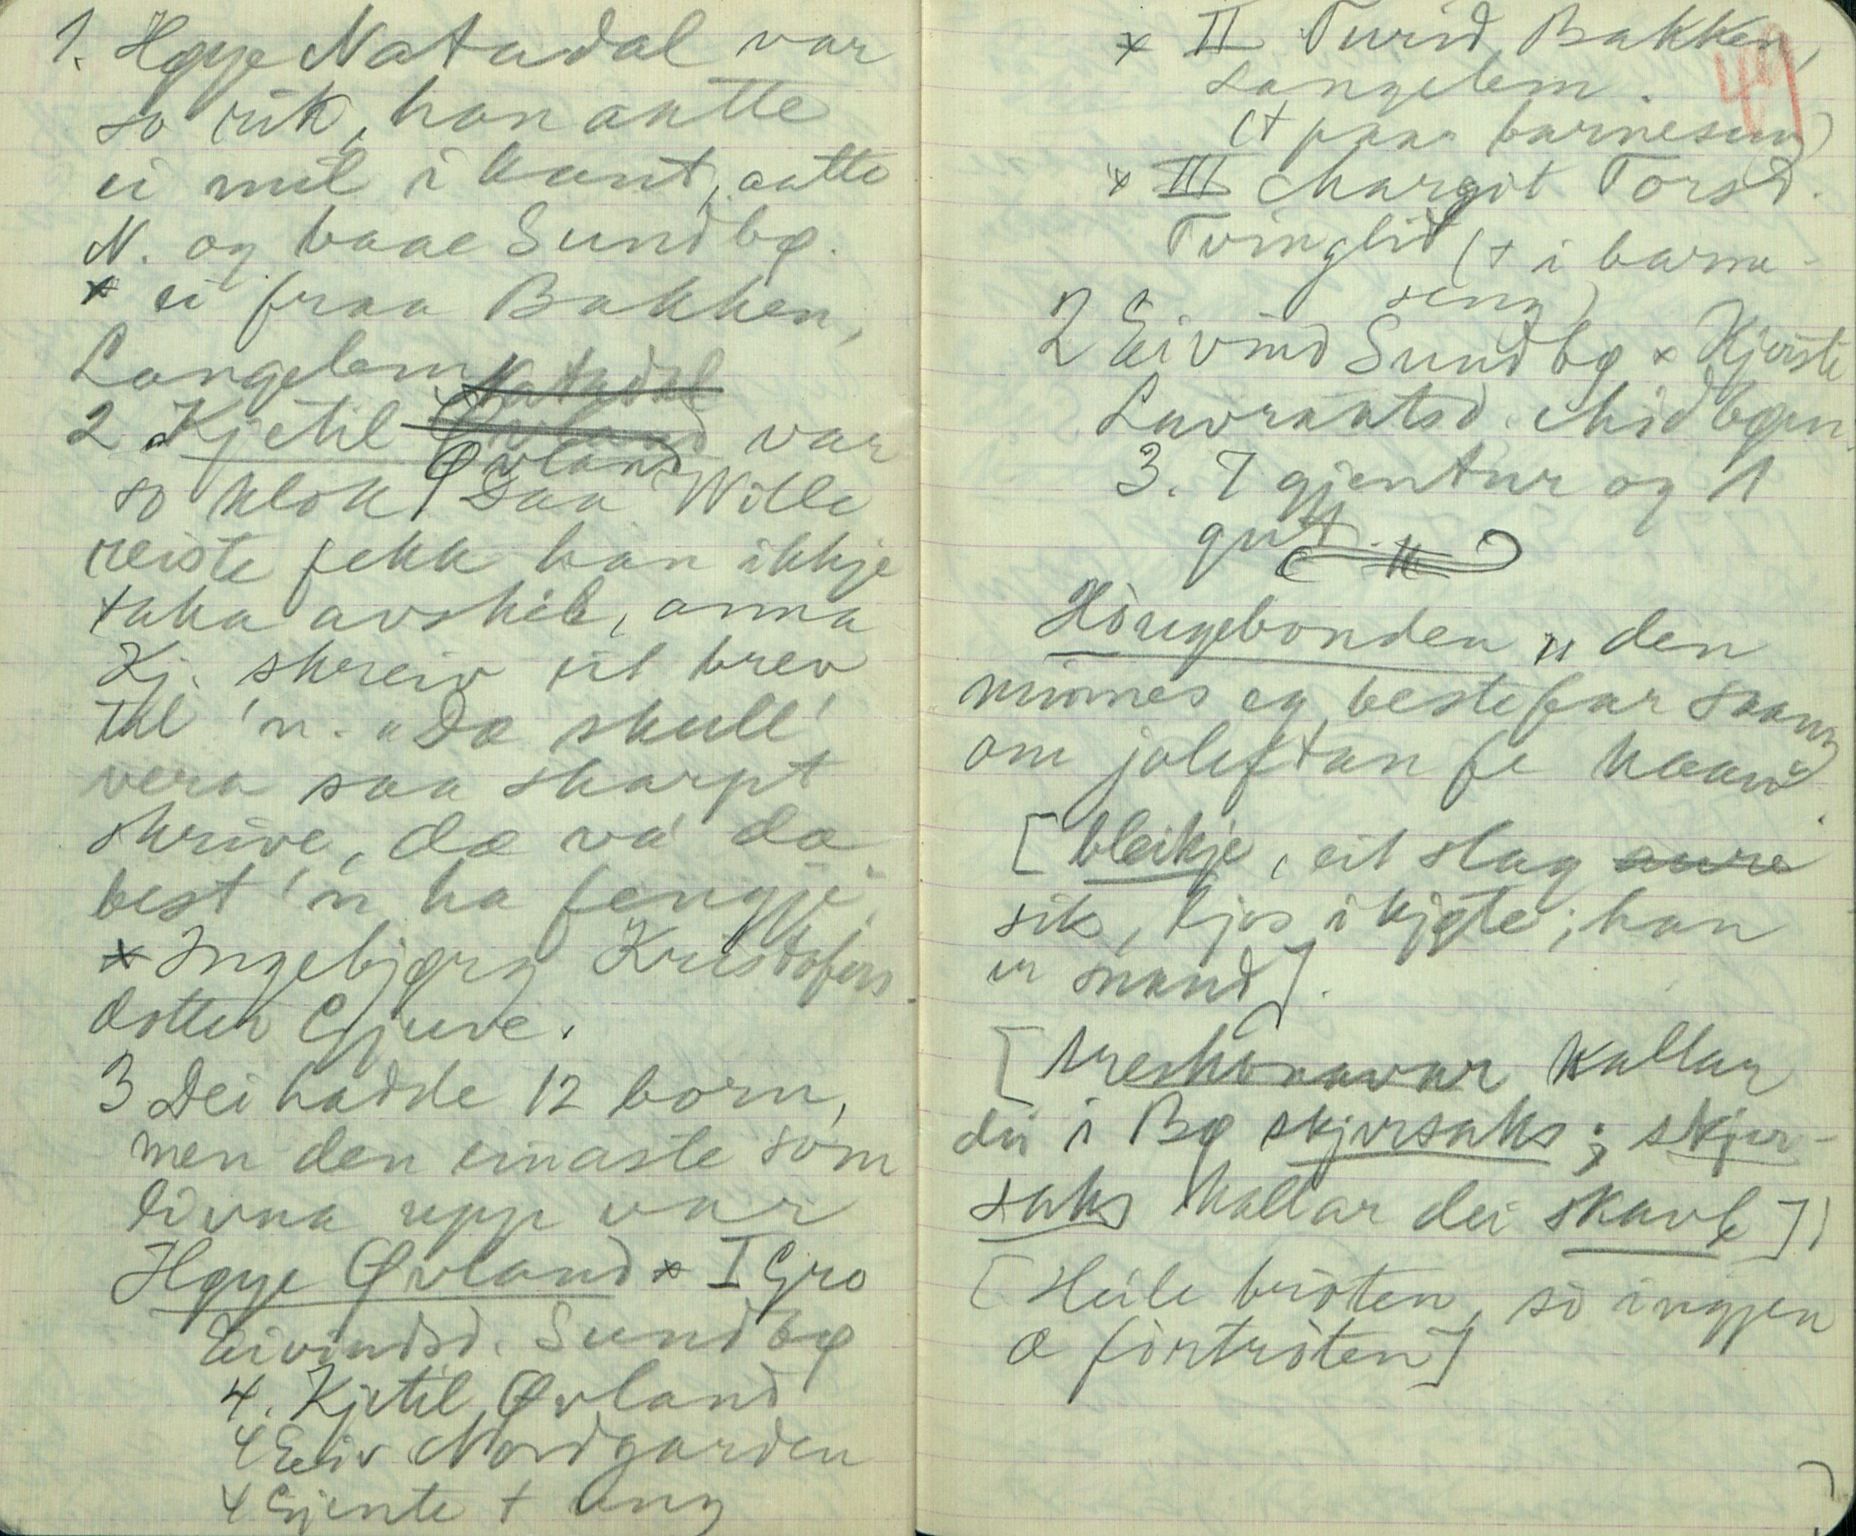 1. Høye Natadal var
so rik, han aatte
ei mil i kant, aatte
N. og baae Sundbø.
× ei fraa Bakken,
Langelem
Natadal
2 Kjetil Øvland var
Øvland
so klok, Daa Wille
reiste fekk han ikkje
taka avskil, anna
Kj. skreiv eit brev
til 'n. "Dæ skull'
vera saa skarpt
skrive, dæ va' dæ
best 'n ha fengje.
× Ingebjørg Kristofers
dotter Gjuve.
3 Dei hadde 12 born,
men den einaste som
livna upp var
Høye Øvland × I Gro
Eivindsd. Sundbø
4. Kjetil Øvland
4 Eiv Nordgarden
4 Gjente + ung
× II Turid Bakken,
Langelem.
(+ paa barneseng)
× III Margit Torsd.
Tvinglid (+ i barne-
seng)
2 Eivind Sundbø × Kjerste
Lavraatsd. Midbøen
3. 7 gjentur og 1
gut.
Haugebonden " den
minnes eg bestefar saang
om joleftan fe kaand.
[bleikje, eit slag aure
sik, kjøs i kjøte; han
er snand].
[treskonavar kallar
dei i Bø skjersaks; skjer-
saks kallar dei skavl]
[Heile brøten, so ingjen
æ fortrøten]